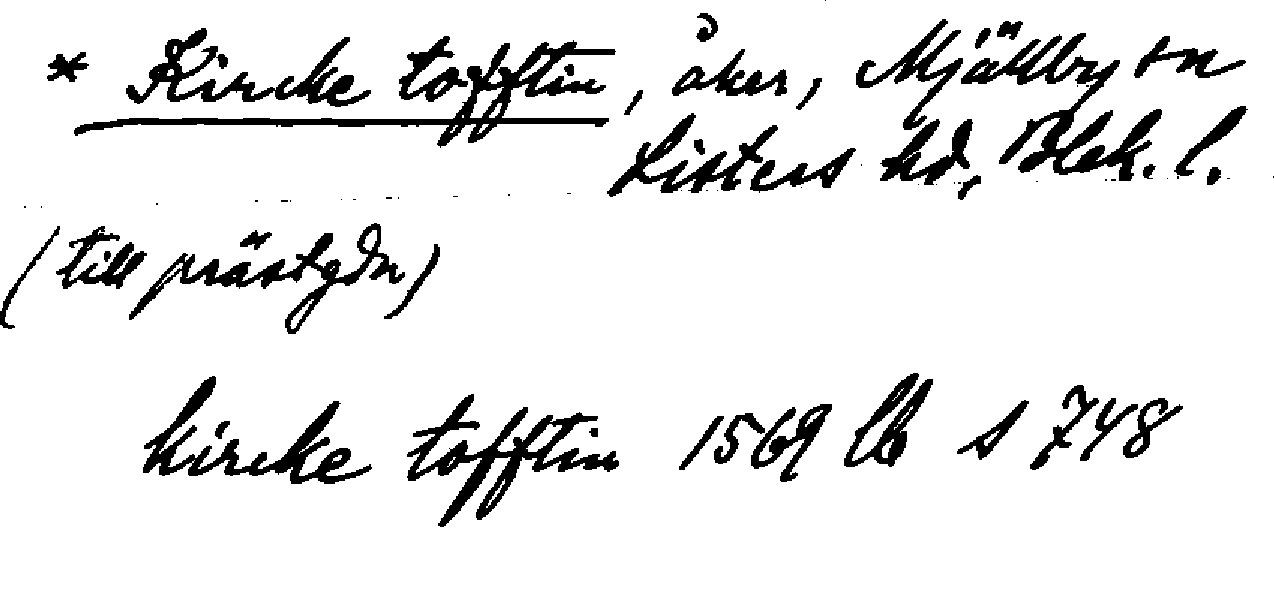 * Kircke tofftin, åker, Mjällby sn
Listers hd, Blek. l.
(till prästgdn)
kircke tofftin 1569 lb s 748